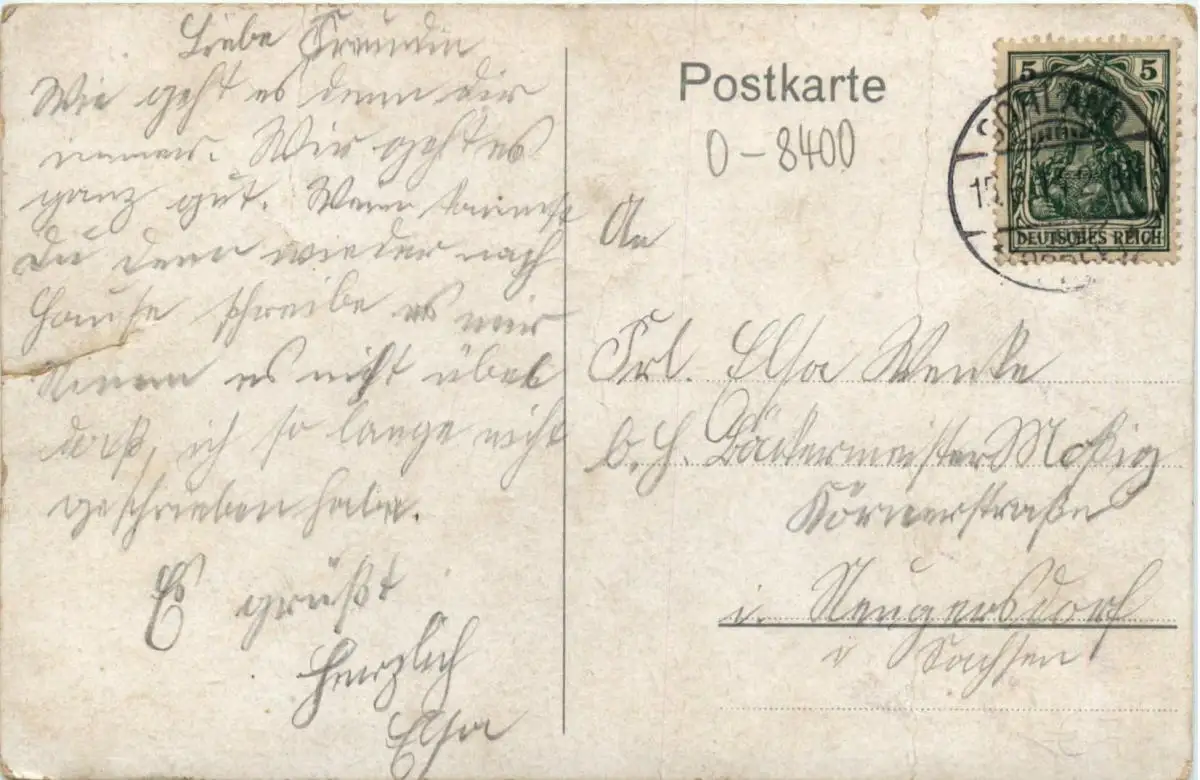 Liebe Freundin
Wie geht es denn dir
immer. Mir geht es
ganz gut. Wann kommst
Du denn wieder nach
Hause schreibe es mir
Nimm es nicht übel
daß, ich so lange nicht
geschrieben habe.
Es grüßt
Herzlich
Elsa
Postkarte
0-8400
An
Frl. Elsa Wenke
b. H. Bäckermeister Moßig
Körnerstraße
i. Neugersdorf
i Sachsen
5 5
DEUTSCHES REICH
SOHLAND